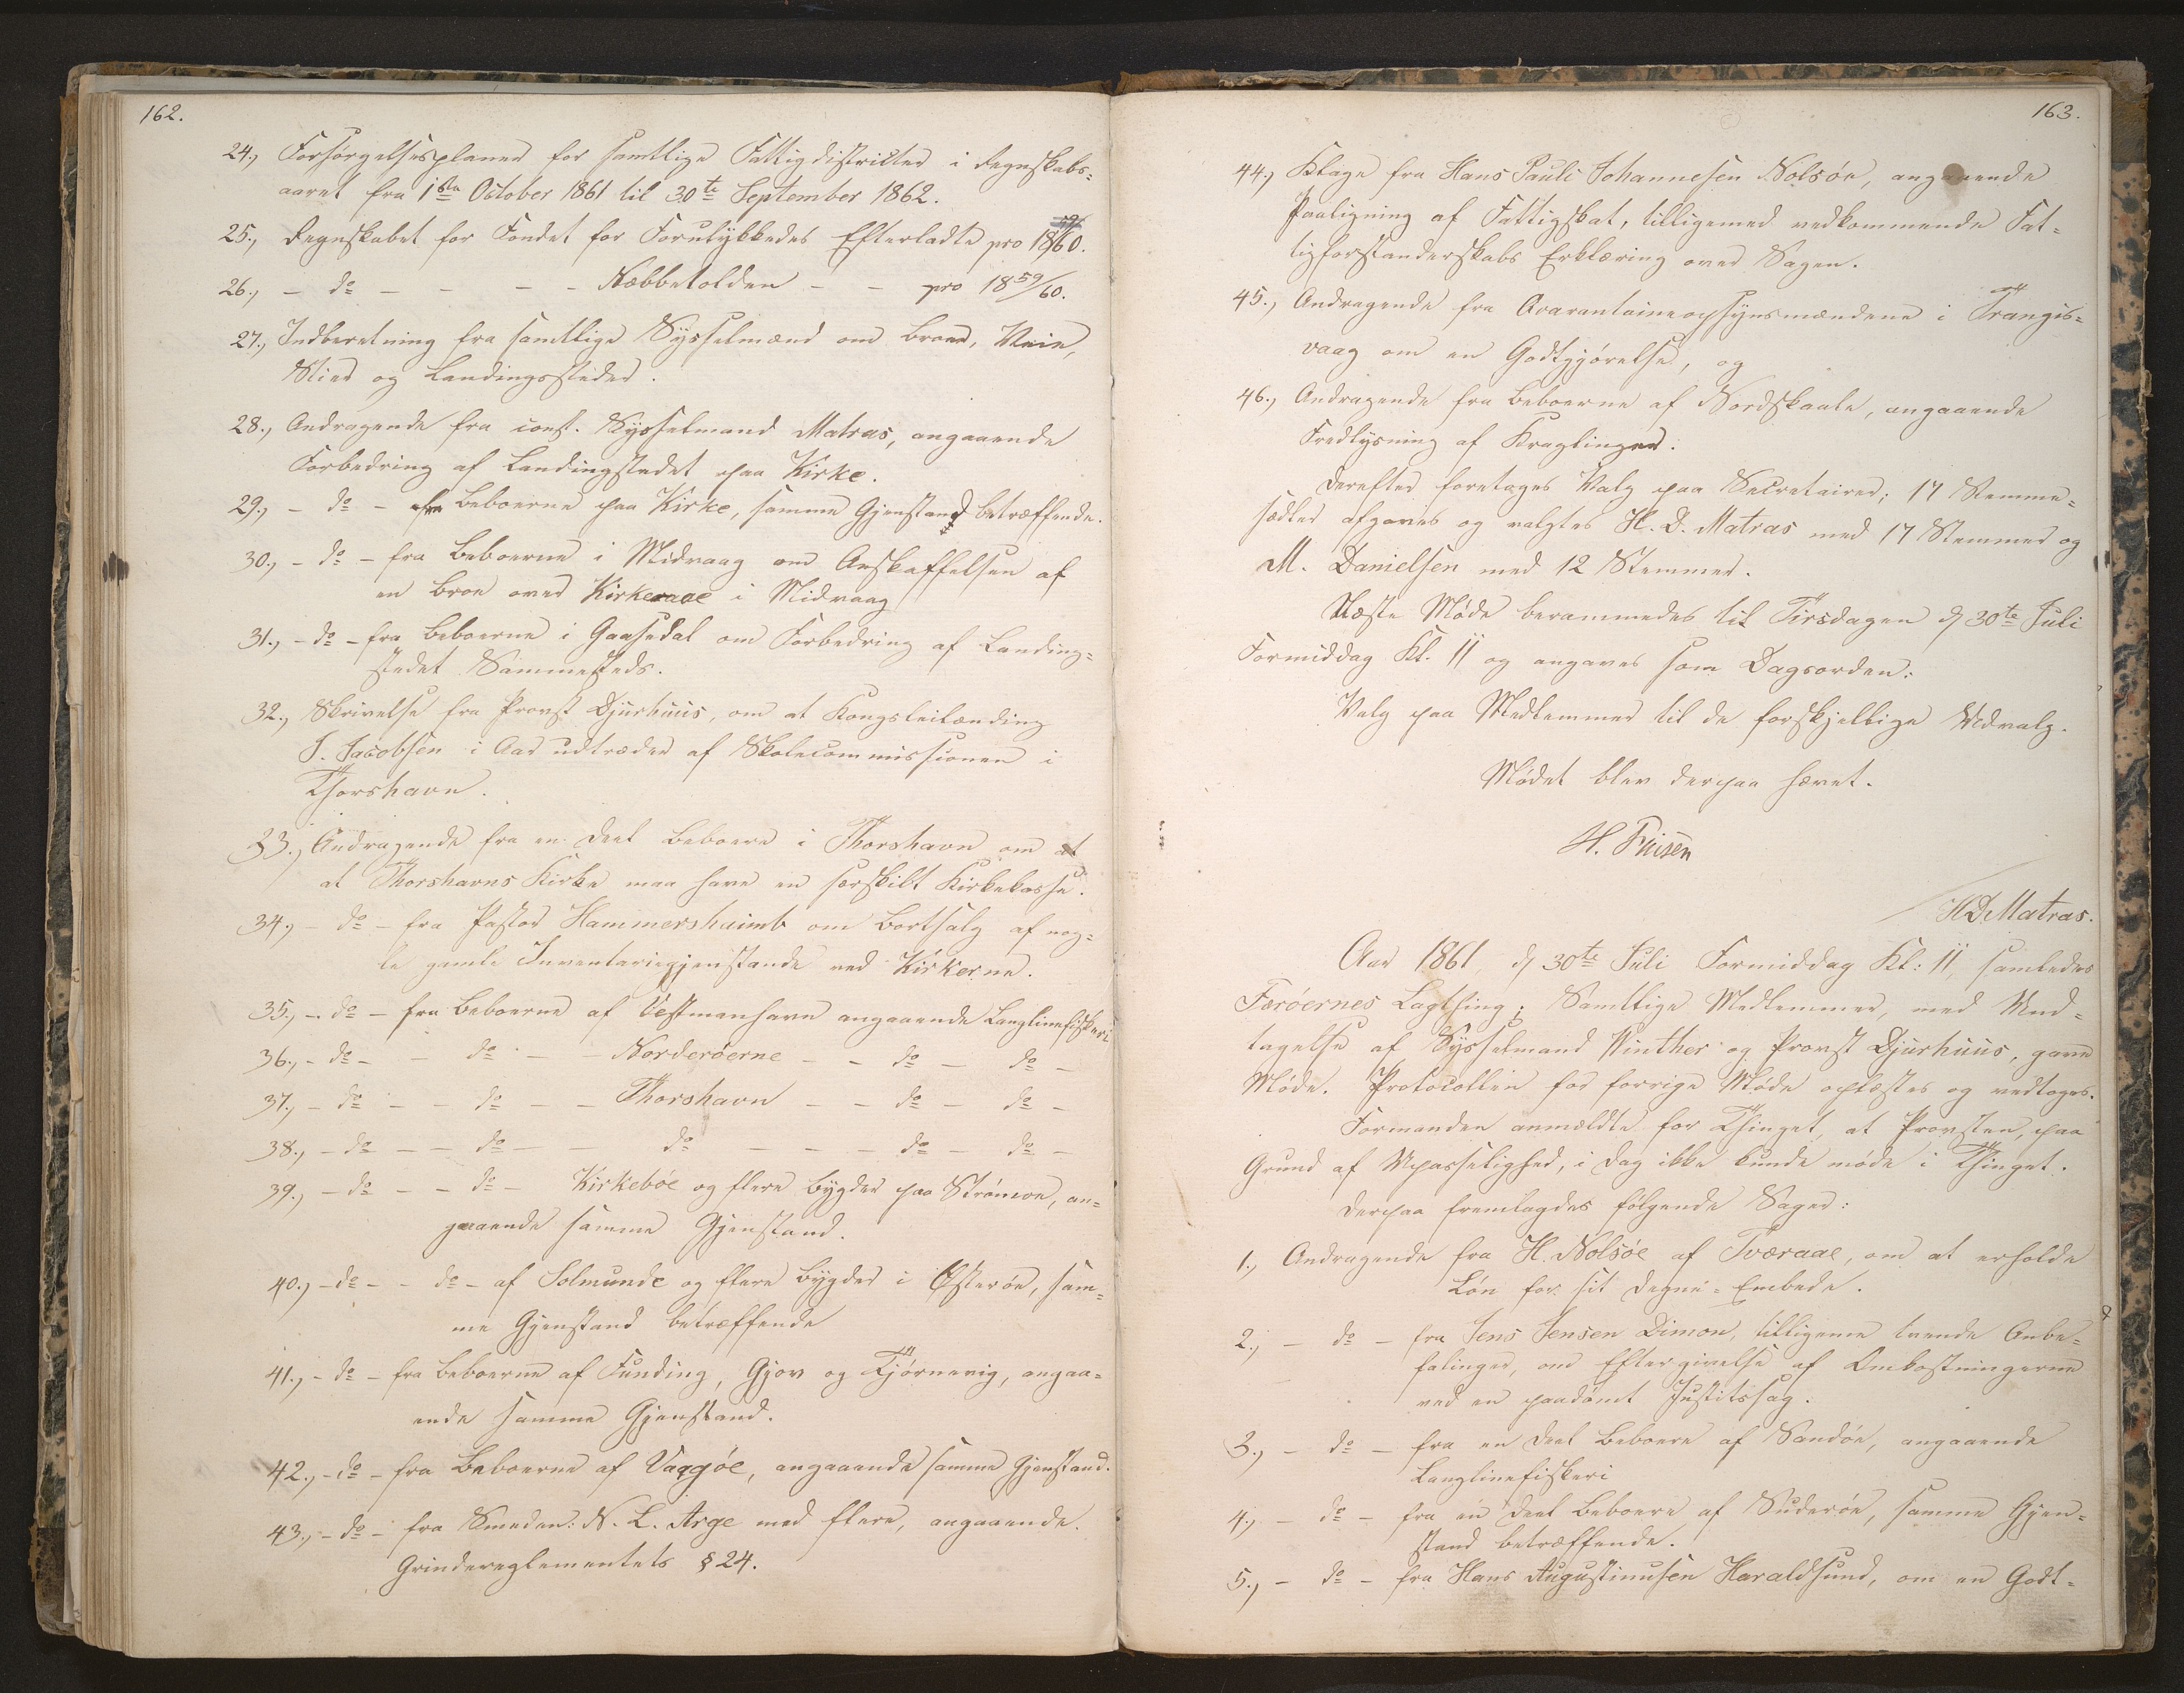 162.
24., Forsørgelsesplaner for samtlige Fattigdistricter i Regnskabs-
aaret fra 1ste October 1861 til 30te September 1862.
25., Regnskabet for Fondet for Forulykkedes Efterladte pro 1860.
26., - do - - - - Næbbetolden - - pro 1859/60.
27., Indberetning fra samtlige Sysselmænd om Broer, Veie,
Stier og Landingssteder.
28., Andragende fra const. Sysselmand Matras, angaaende
Forbedring af Landingstedet paa Kirke.
29., - do - fra Beboerne paa Kirke, samme Gjenstand betræffende.
30., - do - fra Beboerne i Midvaag om Anskaffelsen af
en Broe over Kirkeaae i Midvaag
31., - do - fra Beboerne i Gaasedal om Forbedring af Landing-
stedet Sammesteds.
32., Skrivelse fra Provst Djurhuus, om at Kongsleilænding
J. Jacobsen i Aar udtræder af Skolecommissionen i
Thorshavn.
33., Andragende fra en Deel Beboere i Thorshavn om at
at Thorshavns Kirke maa have en særskilt Kirkekasse.
34., - do - fra Pastor Hammershaimb om Bortsalg af nog-
le gamle Inventariegjenstande ved Kirkerne.
35., - do - fra Beboerne af Vestmanhavn angaaende Langlinefiskeri
36., - do - - do - - Norderøerne - - do - do -
37., - do - - do - - Thorshavn - - do - do -
38., - do - - do - - do - - - do - do -
39., - do - - do - Kirkebøe og flere Bygder paa Strømoe, an-
gaaende samme Gjenstand.
40., - do - - do - af Solmunde og flere Bygder i Østerøe, sam-
me Gjenstand betræffende
41., - do - fra Beboerne af Funding, Gjov og Tjørnevig, angaa-
ende samme Gjenstand.
42., - do - fra Beboerne af Vaagøe, angaaende samme Gjenstand.
43., - do - fra Smeden: N. L. Arge med flere, angaaende
Grindereglementets § 24.
163.
44., Klage fra Hans Pauli Johannesen Nolsøe, angaaende
Paaligning af Fattigskat, tilligemed vedkommende Fat-
tigforstanderskabs Erklæring over Sagen.
45., Andragende fra Qvarantaineopsynsmændene i Trangis-
vaag om en Godtgjørelse, og
46., Andragende fra Beboerne af Nordskaale, angaaende
Fredlysning af Kraglinger.
Derefter foretoges Valg paa Secretairer; 17 Stemme-
sedler afgaves og valgtes H. D. Matras med 17 Stemmer og
M. Danielsen med 12 Stemmer.
Næste Møde berammedes til Tirsdagen d 30te Juli
Formiddag Kl. 11 og angaves som Dagsorden:
Valg paa Medlemmer til de forskjellige Udvalg.
Mødet blev derpaa hævet.
HD Matras.
Aar 1861 d 30te Juli Formiddag Kl: 11, samledes
Færøernes Lagthing; Samtlige Medlemmer, med Und-
tagelse af Sysselmand Winther og Provst Djurhuus, gave
Møde. Protocollen for forrige Møde oplæstes og vedtoges.
Formanden anmeldte for Thinget, at Provsten, paa
Grund af Upasselighed, i Dag ikke kunde møde i Thinget.
Derpaa fremlagdes følgende Sager:
1., Andragende fra H. Nolsøe af Tværaae, om at erholde
Løn for sit Degne-Embede.
2., - do - fra Jens Jensen Dimon, tilligeme tvende Anbe-
falinger, om Eftergivelse af Omkostningerne
ved en paadømt Justitssag.
3., - do - fra en Deel Beboere af Sandøe, angaaende
Langlinefiskeri
4., - do - fra en Deel Beboere af Suderøe, samme Gjen-
stand betræffende.
5., - do - fra Hans Augustinusen Haraldsund, om en Godt-